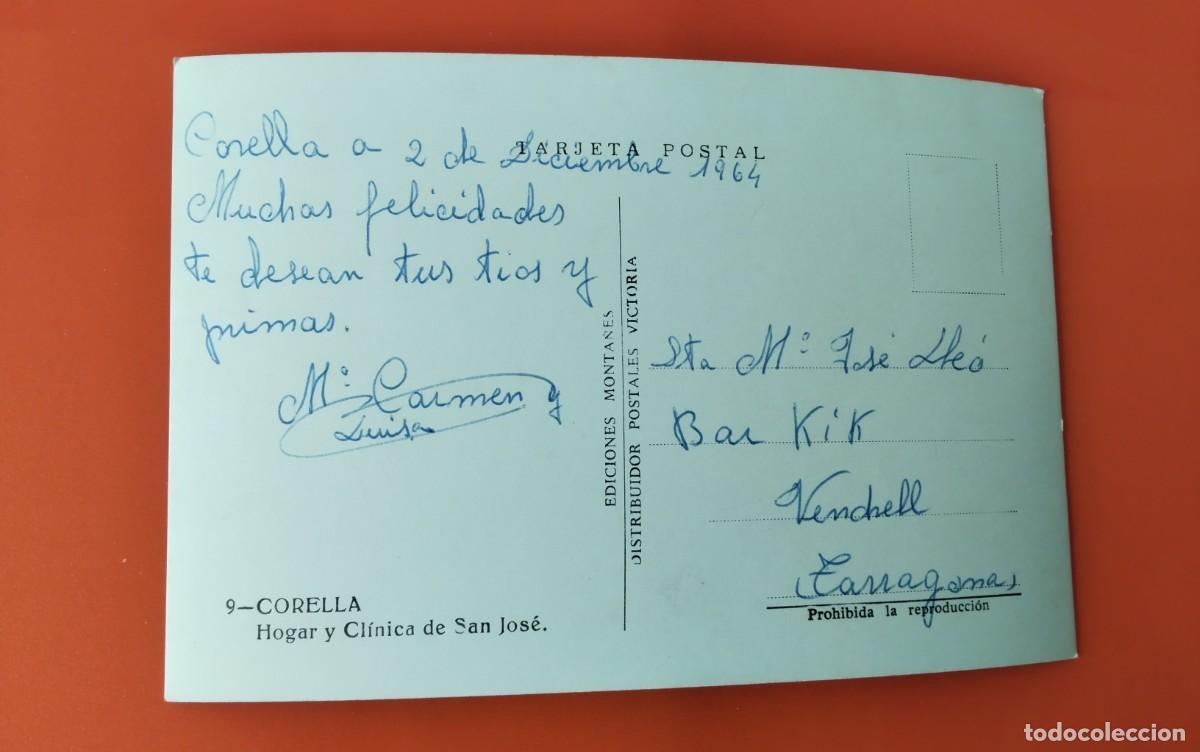 TARJETA POSTAL
Corella a 2 de Diciembre 1964
Muchas felicidades
te desean tus tios y
primas.
Mª Carmen y
Luisa
9—CORELLA
Hogar y Clínica de San José.
EDICIONES MONTAÑES
DISTRIBUIDOR POSTALES VICTORIA
Sta Mª José Lleó
Bar KiK
Vendrell
(Tarragona)
Prohibida la reproducción
todocoleccion